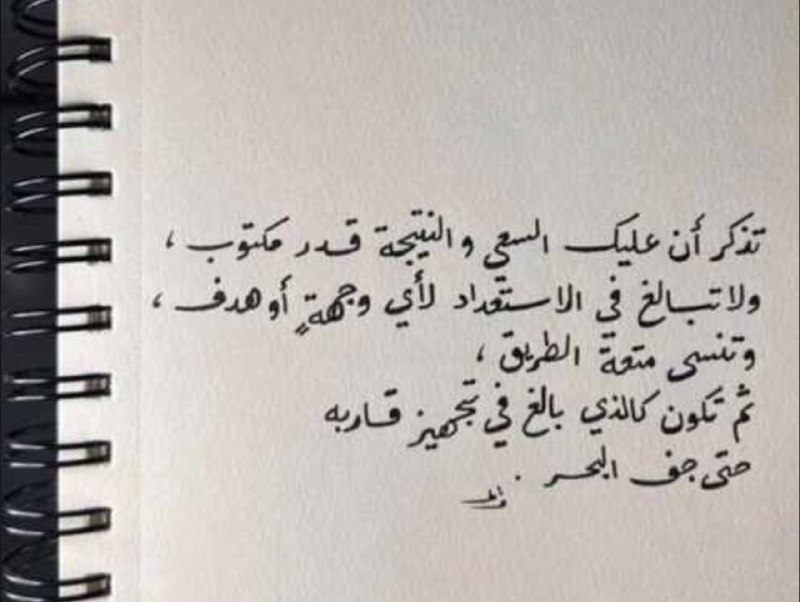 تذكر أن عليك السعي والنتيجة قدر مكتوب ،
ولا تبالغ في الاستعداد لأي وجهةٍ أو هدف ،
وتنسى متعة الطريق ،
ثم تكون كالذي بالغ في تجهيز قاربه
حتى جف البحر .